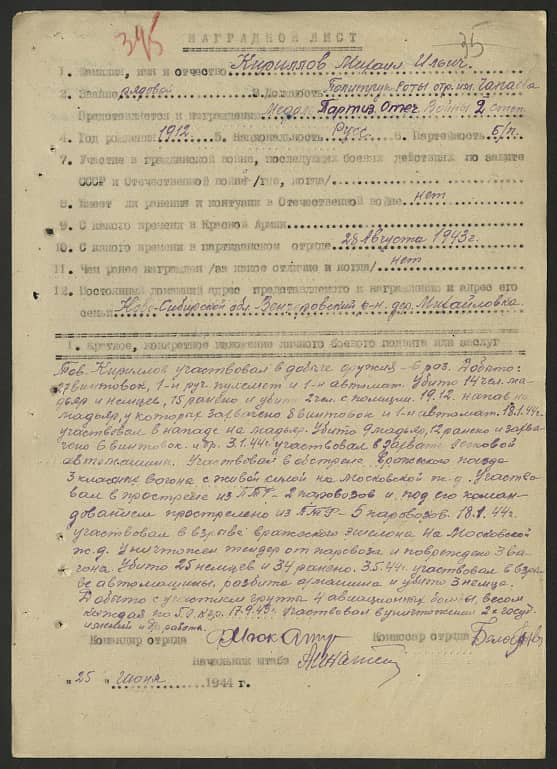 345
35
НАГРАДНОЙ ЛИСТ
1. Фамилия, имя и отчество Кириллов Михаил Ильич.
2. Звание рядовой 3. Должность Политрук Роты отр. им. Чапаева
Представляется к награждению Медал. Партиз. Отеч. Войны 2 степ.
4. Год рождения 1912. 5. Национальность Русс. 6. Партийность б/п.
7. Участие в гражданской войне, последующих боевых действиях по защите
СССР и Отечественной войне /где, когда/
8. Имеет ли ранения и контузии в Отечественной войне нет
9. С какого времени в Красной Армии
10. С какого времени в партизанском отряде 28 Августа 1943 г.
11. Чем ранее награжден /за какое отличие и когда/ нет
12. Постоянный домашний адрес представляемого к награждению и адрес его
семьи Ново-Сибирской обл. Венгеровский р-н. дер. Михайловка.
1. Краткое, конкретное изложение личного боевого подвига или заслуг
Тов. Кириллов участвовал в добыче оружия - 6 раз. Добыто:
винтовок, 1-н руч. пулемет и 1-н автомат. Убито 14 чел. ма-
дьяр и немцев, 15 ранено и убито 2 чел. с полиции. 19.12. напав на
мадьяр, у которых захвачено 8 винтовок и 1-н автомат. 18.1.44г.
участвовал в нападе на мадьяр. Убито 9 мадьяр, 12 ранено и захва-
чено 6 винтовок и др. 3.1.44г. участвовал в захвате легковой
автомашины. Участвовал в обстреле вражеского поезда
3 классных вагона с живой силой на Московской ж.д. Участво-
вал в простреле из ПТР - 2 паровозов и, под его коман-
дованием прострелено из ПТР - 5 паровозов. 18.1.44г.
участвовал в взрыве вражеского эшелона на Московской
ж.д. Уничтожен тендер от паровоза и повреждено 3 ва-
гона. Убито 25 немцев и 34 ранено. 3.5.44г. участвовал в взры-
ве автомашины, разбита а/машина и убито 3 немца.
Добыто с участием группы 4 авиационных бомбы, весом
каждая по 50 кгр. 17.9.43г. участвовал в уничтожении 2х госуд
имений и др. работа.
Командир отряда Комиссар отряда
Начальник штаба
"25" июня 1944 г.